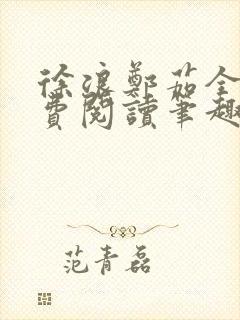 徐浪鄭茹全
費閱讀筆趣
范青磊